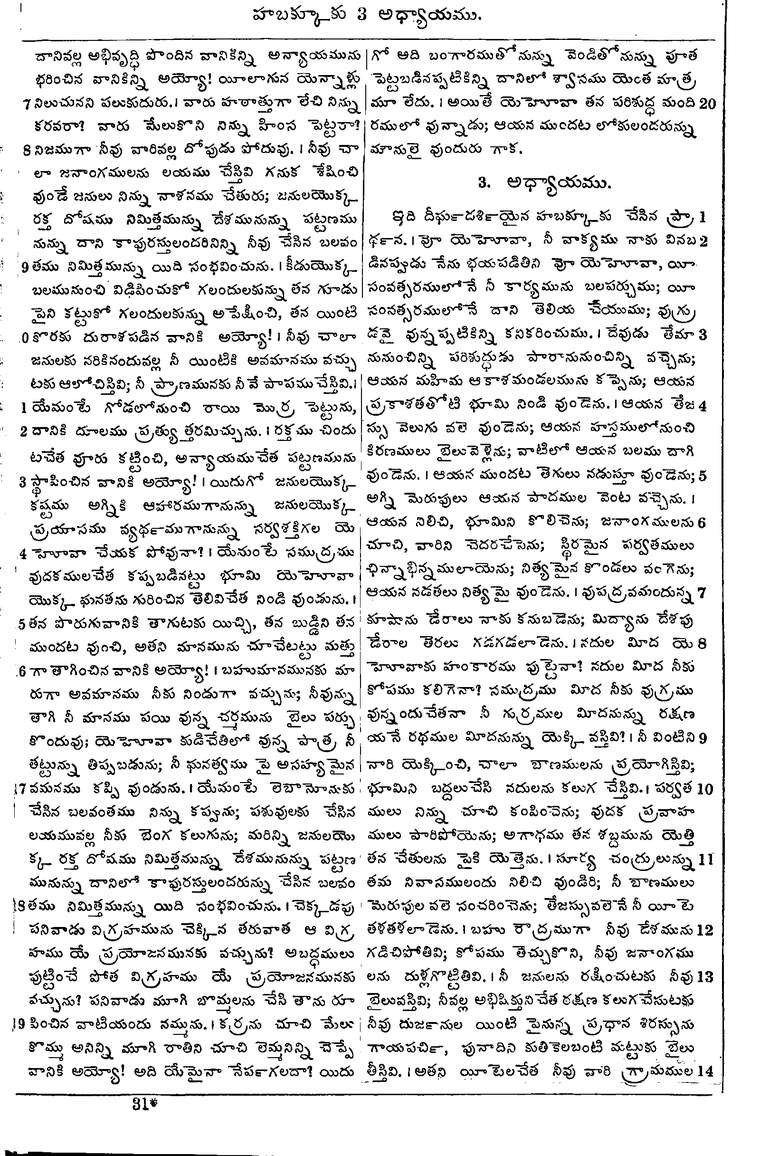 హబక్కూకు 3 అధ్యాయము.
దానివల్ల అభివృద్ధి పొందిన వానికిన్ని అన్యాయమును
భరించిన వానికిన్ని అయ్యో! యీలాగున యెన్నాళ్లు
7 నిలుచునని పలుకుదురు. । వారు హఠాత్తుగా లేచి నిన్ను
కరవరా? వారు మేలుకొని నిన్ను హింస పెట్టరా?
8 నిజముగా నీవు వారివల్ల దోపుడు పోదువు. । నీవు చా
లా జనాంగములను లయము చేస్తివి గనుక శేషించి
వుండే జనులు నిన్ను నాశనము చేతురు; జనులయొక్క
రక్త దోషము నిమిత్తమున్ను దేశమునున్ను పట్టణము
నున్ను దాని కాపురస్తులందరినిన్ని నీవు చేసిన బలవం
9 తము నిమిత్తమున్ను యిది సంభవించును. । కీడుయొక్క
బలమునుంచి విడిపించుకో గలందులకున్ను తన గూడు
పైని కట్టుకో గలందులకున్ను అపేక్షించి, తన యింటి
0 కొరకు దురాశపడిన వానికి అయ్యో! । నీవు చాలా
జనులకు నరికినందువల్ల నీ యింటికి అవమానము వచ్చు
టకు ఆలోచిస్తివి; నీ ప్రాణమునకు నీవే పాపము చేస్తివి. ।
1 యేమంటే గోడలోనుంచి రాయి మొర్ర పెట్టును,
2 దానికి దూలము ప్రత్యుత్తరమిచ్చును. । రక్తము చిందు
టచేత వూరు కట్టించి, అన్యాయముచేత పట్టణమును
3 స్థాపించిన వానికి అయ్యో! । యిదుగో జనులయొక్క
కష్టము అగ్నికి ఆహారముగానున్ను జనులయొక్క
ప్రయాసము వ్యర్థముగానున్ను సర్వశక్తిగల యె
4 హోవా చేయక పోవునా? । యేమంటే సముద్రము
వుదకములచేత కప్పబడినట్టు భూమి యెహోవా
యొక్క ఘనతను గురించిన తెలివిచేత నిండి వుండును. ।
5 తన పొరుగువానికి తాగుటకు యిచ్చి, తన బుడ్డిని తన
ముందట వుంచి, అతని మానమును చూచేటట్టు మత్తు
6 గా తాగించిన వానికి అయ్యో! । బహుమానమునకు మా
రుగా అవమానము నీకు నిండుగా వచ్చును; నీవున్ను
తాగి నీ మానము పయి వున్న చర్మమును బైలు పర్చు
కొందువు; యెహోవా కుడిచేతిలో వున్న పాత్ర నీ
తట్టున్ను తిప్పబడును; నీ ఘనత్వము పై అసహ్యమైన
17 వమనము కప్పి వుండును. । యేమంటే లెబానోనుకు
చేసిన బలవంతము నిన్ను కప్పును; పశువులకు చేసిన
లయమువల్ల నీకు బెంగ కలుగును; మరిన్ని జనులయొ
క్క రక్త దోషము నిమిత్తమున్ను దేశమునున్ను పట్టణ
మునున్ను దానిలో కాపురస్తులందరున్ను చేసిన బలవం
18 తము నిమిత్తమున్ను యిది సంభవించును. । చెక్కడపు
పనివాడు విగ్రహమును చెక్కిన తరువాత ఆ విగ్ర
హము యే ప్రయోజనమునకు వచ్చును? అబద్ధములు
పుట్టించే పోత విగ్రహము యే ప్రయోజనమునకు
వచ్చును? పనివాడు మూగి బొమ్మలను చేసి తాను రూ
19 పించిన వాటియందు నమ్మును. । కర్రను చూచి మేలు
కొమ్ము అనిన్ని మూగి రాతిని చూచి లెమ్మనిన్ని చెప్పే
వానికి అయ్యో! అది యేమైనా నేర్పగలదా? యిదు
గో అది బంగారముతోనున్ను వెండితోనున్ను పూత
పెట్టబడినప్పటికిన్ని దానిలో శ్వాసము యెంత మాత్ర
మూ లేదు. । అయితే యెహోవా తన పరిశుద్ధ మంది 20
రములో వున్నాడు; ఆయన ముందట లోకులందరున్ను
మౌనులై వుందురు గాక.
3. అధ్యాయము.
ఇది దీర్ఘదర్శియైన హబక్కూకు చేసిన ప్రా 1
ర్థన. । వో యెహోవా, నీ వాక్యము నాకు వినబ 2
డినప్పుడు నేను భయపడితిని వో యెహోవా, యీ
సంవత్సరములోనే నీ కార్యమును బలపర్చుము; యీ
సంవత్సరములోనే దాని తెలియ చేయుము; వుగ్రు
డవై వున్నప్పటికిన్ని కనికరించుము. । దేవుడు తేమా 3
నునుంచిన్ని పరిశుద్ధుడు పారానునుంచిన్ని వచ్చెను;
ఆయన మహిమ ఆకాశమండలమును కప్పెను; ఆయన
ప్రకాశతతోటి భూమి నిండి వుండెను. । ఆయన తేజ 4
స్సు వెలుగు వలె వుండెను; ఆయన హస్తములోనుంచి
కిరణములు బైలువెళ్లెను; వాటిలో ఆయన బలము దాగి
వుండెను. । ఆయన ముందట తెగులు నడుస్తూ వుండెను; 5
అగ్ని మెరుపులు ఆయన పాదముల వెంట వచ్చెను. ।
ఆయన నిలిచి, భూమిని కొలిచెను; జనాంగములను 6
చూచి, వారిని చెదరచేసెను; స్థిరమైన పర్వతములు
ఛిన్నాభిన్నములాయెను; నిత్యమైన కొండలు వంగెను;
ఆయన నడతలు నిత్యమై వుండెను. । వుపద్రవమందున్న 7
కూషాను డేరాలు నాకు కనుబడెను; మిద్యాను దేశపు
డేరాల తెరలు గడగడలాడెను. । నదుల మీద యె 8
హోవాకు హుంకారము పుట్టెనా? నదుల మీద నీకు
కోపము కలిగెనా? సముద్రము మీద నీకు వుగ్రము
వున్నందుచేతనా నీ గుర్రముల మీదనున్ను రక్షణ
యనే రథముల మీదనున్ను యెక్కి వస్తివి? । నీ వింటిని 9
నారి యెక్కించి, చాలా బాణములను ప్రయోగిస్తివి;
భూమిని బద్దలుచేసి నదులను కలుగ చేస్తివి. । పర్వత 10
ములు నిన్ను చూచి కంపించెను; వుదక ప్రవాహ
ములు పారిపోయెను; అగాధము తన శబ్దమును యెత్తి
తన చేతులను పైకి యెత్తెను. । సూర్య చంద్రులున్ను 11
తమ నివాసములందు నిలిచి వుండిరి; నీ బాణములు
మెరుపుల వలె సంచరించెను; తేజస్సువలెనే నీ యీటె
తళతళలాడెను. । బహు రౌద్రముగా నీవు దేశమును 12
గడిచిపోతివి; కోపము తెచ్చుకొని, నీవు జనాంగము
లను దుళ్లగొట్టితివి. । నీ జనులను రక్షించుటకు నీవు 13
బైలువస్తివి; నీవల్ల అభిషిక్తునిచేత రక్షణ కలుగచేసుటకు
నీవు దుర్జనుల యింటి పైనున్న ప్రధాన శిరస్సును
గాయపర్చి, పునాదిని కుతికెలబంటి మట్టుకు బైలు
తీస్తివి. । అతని యీటెలచేత నీవు వారి గ్రామముల 14
31*